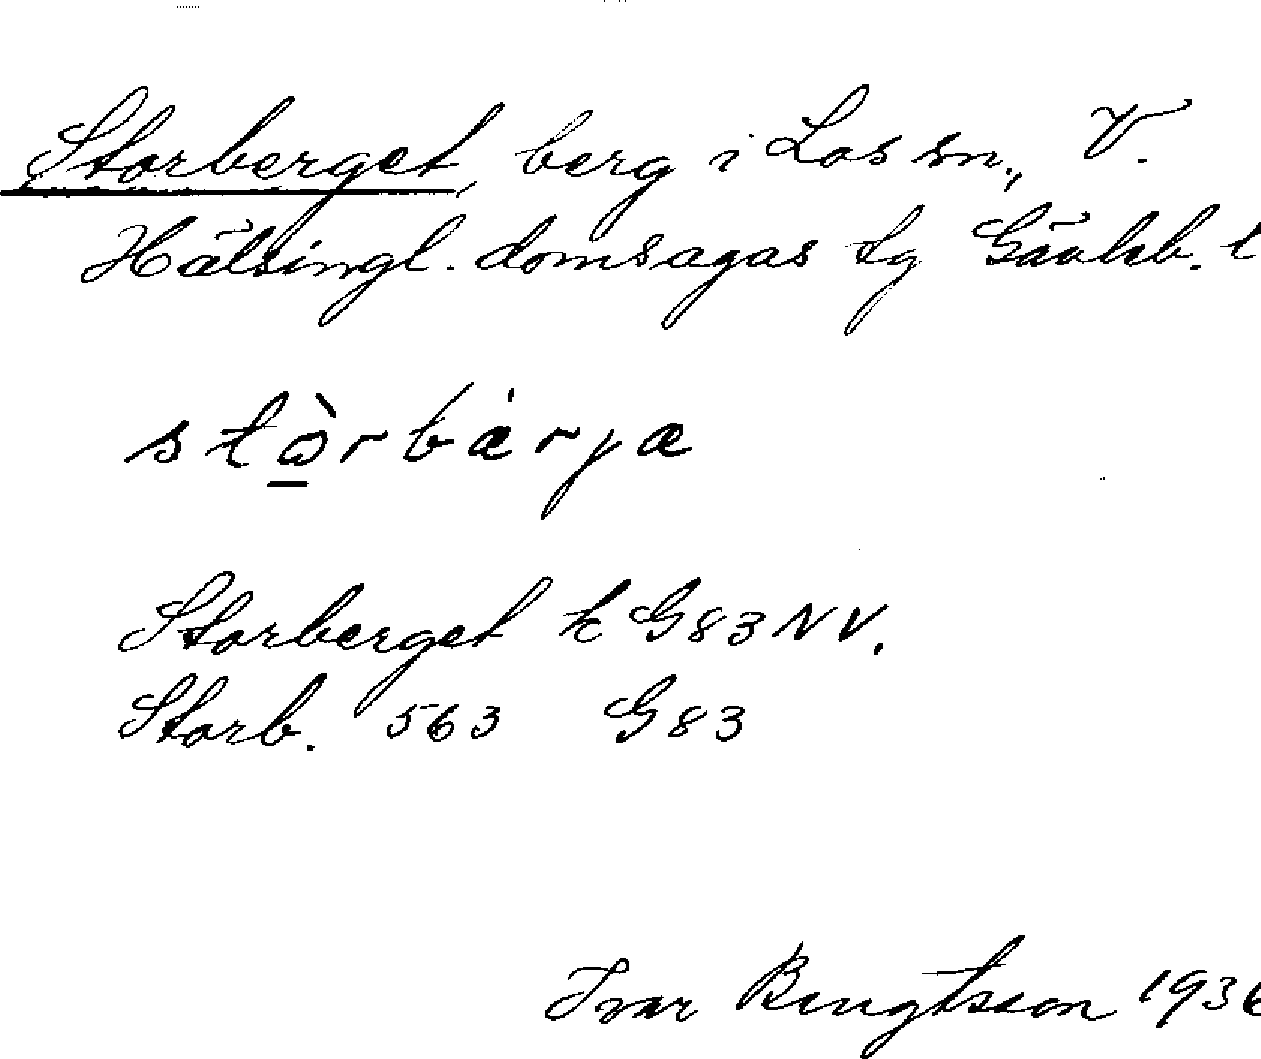 Storberget, berg i Los sn., V.
Hälsingl. domsagas tg Gävleb. l
stòrbærjæ
Storberget k G83NV.
Storb. 563 G83
Ivar Bengtsson 1936